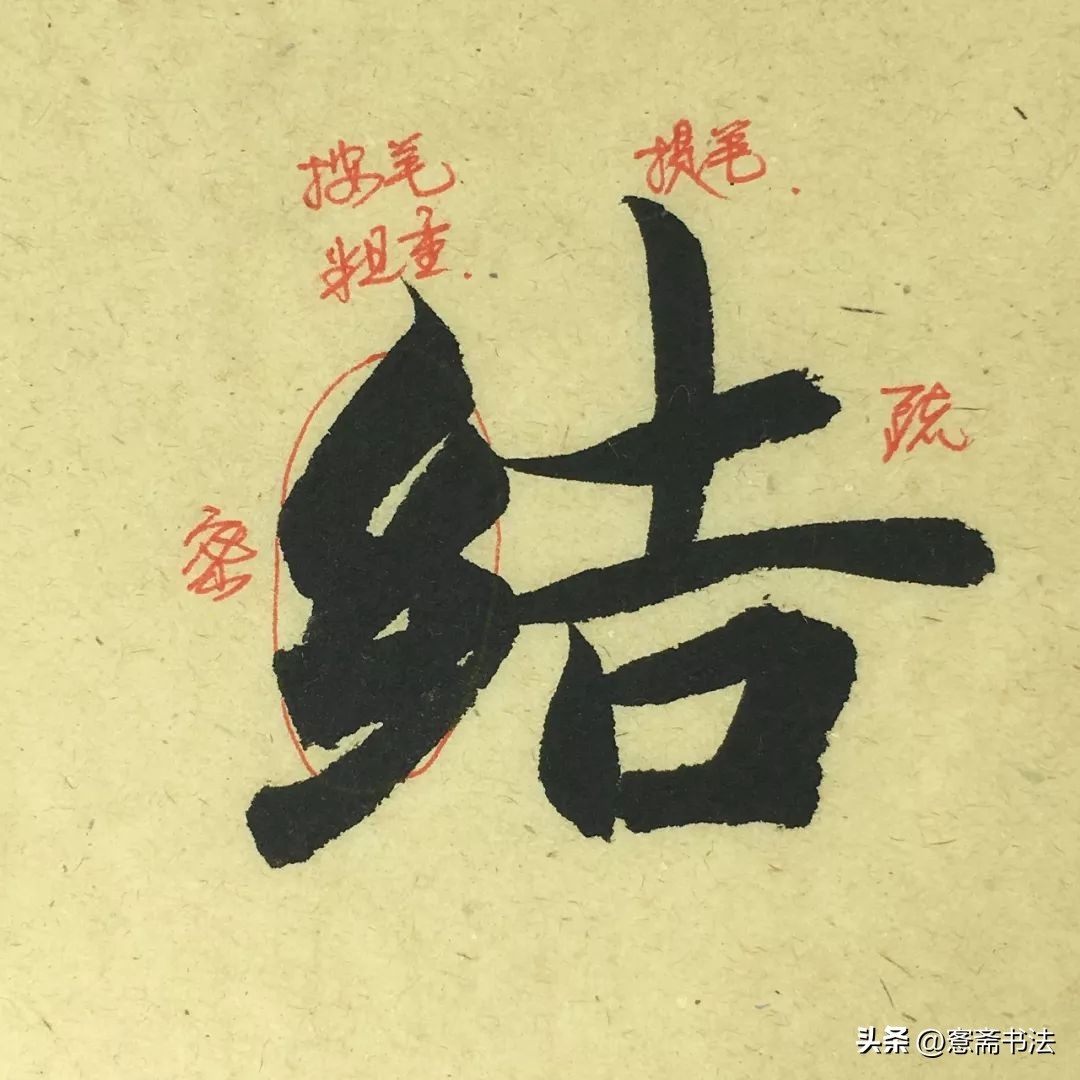 按笔
粗重.
提笔.
结
疏
密
头条 @窓斋书法